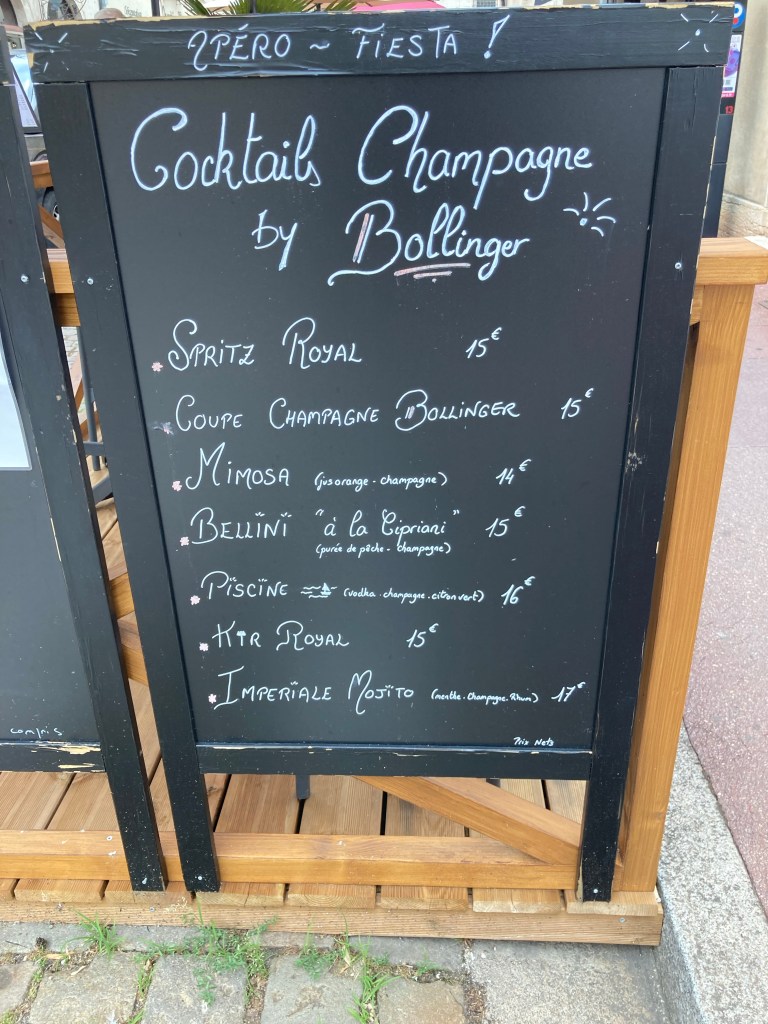 Apéro ~ Fiesta !
Cocktails Champagne
by Bollinger
Spritz Royal 15€
Coupe Champagne Bollinger 15€
Mimosa (jus orange - champagne) 14€
Bellini "à la Cipriani" 15€
(purée de pêche - champagne)
Piscine (vodka . champagne . citron vert) 16€
Kir Royal 15€
Imperiale Mojito (menthe . champagne . Rhum) 17€
Prix Nets
compris